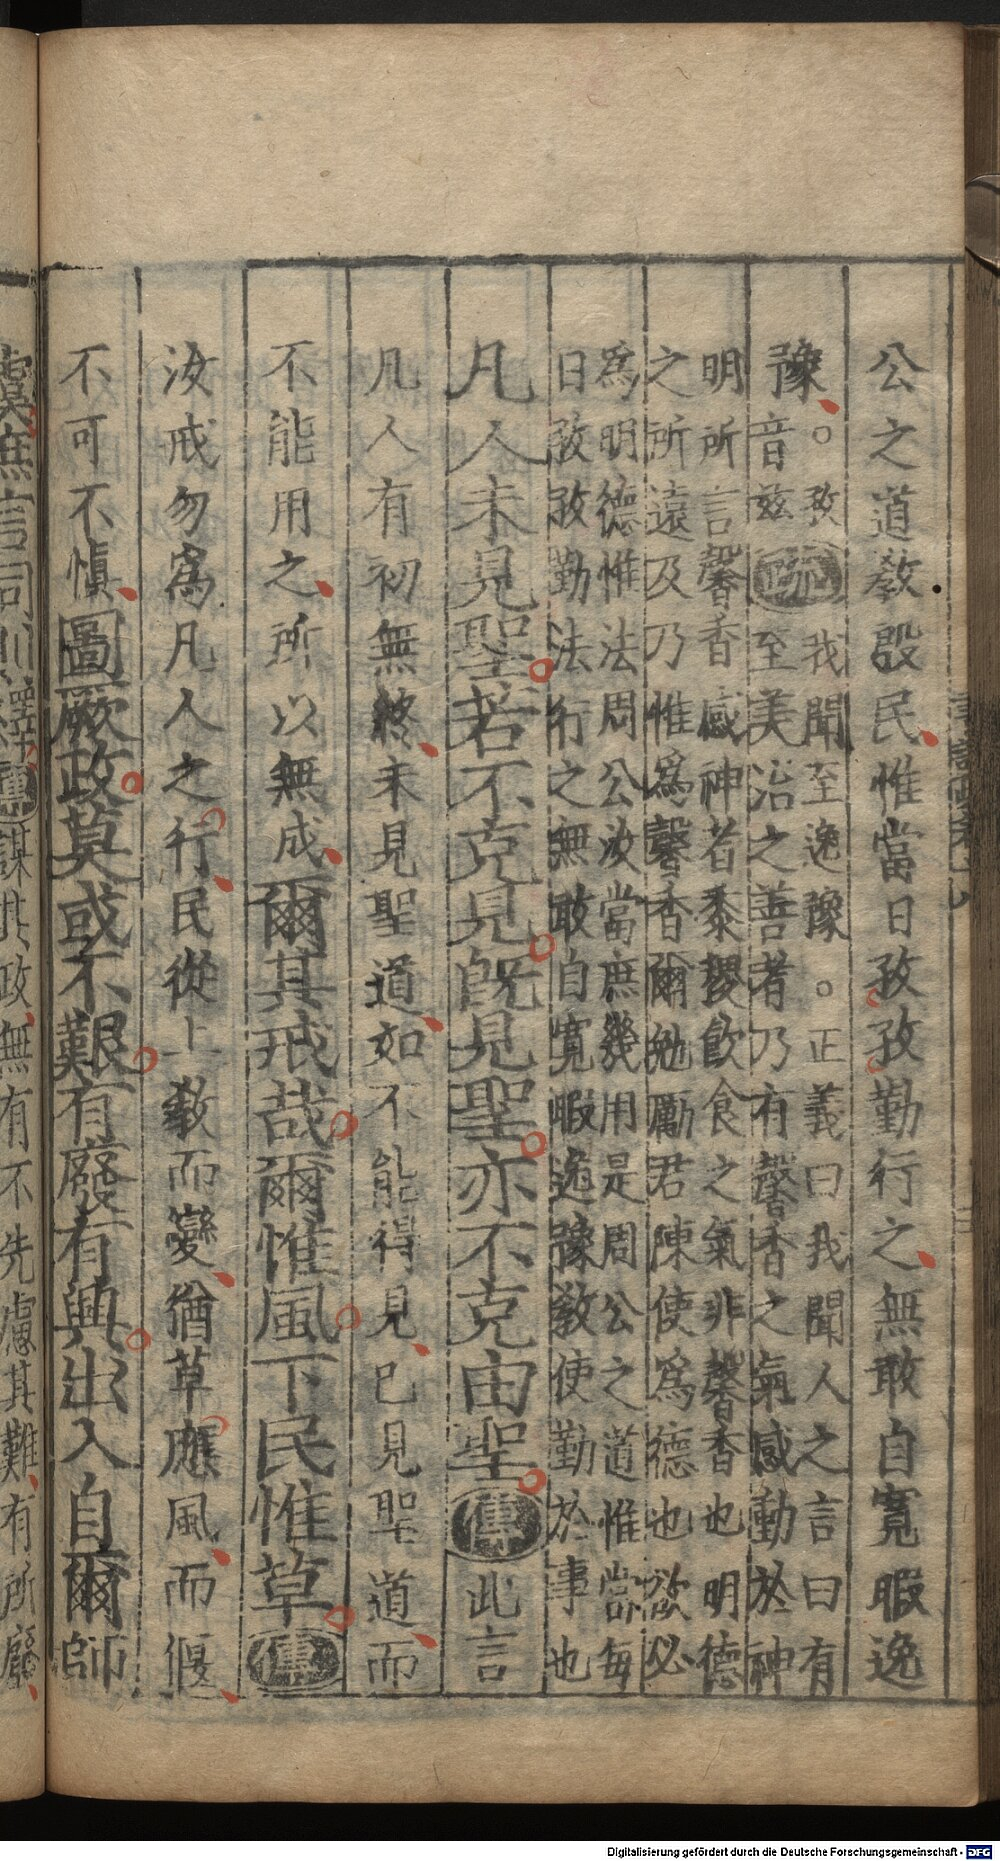 公之道教殷民惟當日孜孜勤行之無敢自寬暇逸
豫○孜
音兹疏我聞至逸豫○正義曰我聞人之言曰有
至美治之善者乃有馨香之氣感動於神
明所言馨香感神者黍稷飲食之氣非馨香也明德
之所遠及乃惟爲馨香爾勉勵君陳使爲德也欲必
爲明德惟法周公汝當庶幾用是周公之道惟當每
日孜孜勤法行之無敢自寬暇逸豫教使勤於事也
凡人未見聖若不克見既見聖亦不克由聖傳此言
凡人有初無終未見聖道如不能得見已見聖道而
不能用之所以無成爾其戒哉爾惟風下民惟草傳
汝戒勿爲凡人之行民從上教而變猶草應風而偃
不可不慎圖厥政莫或不艱有廢有興出入自爾師
虞庶言同則繹傳謀其政無有不先慮其難有所廢
Digitalisierung gefördert durch die Deutsche Forschungsgemeinschaft - DFG